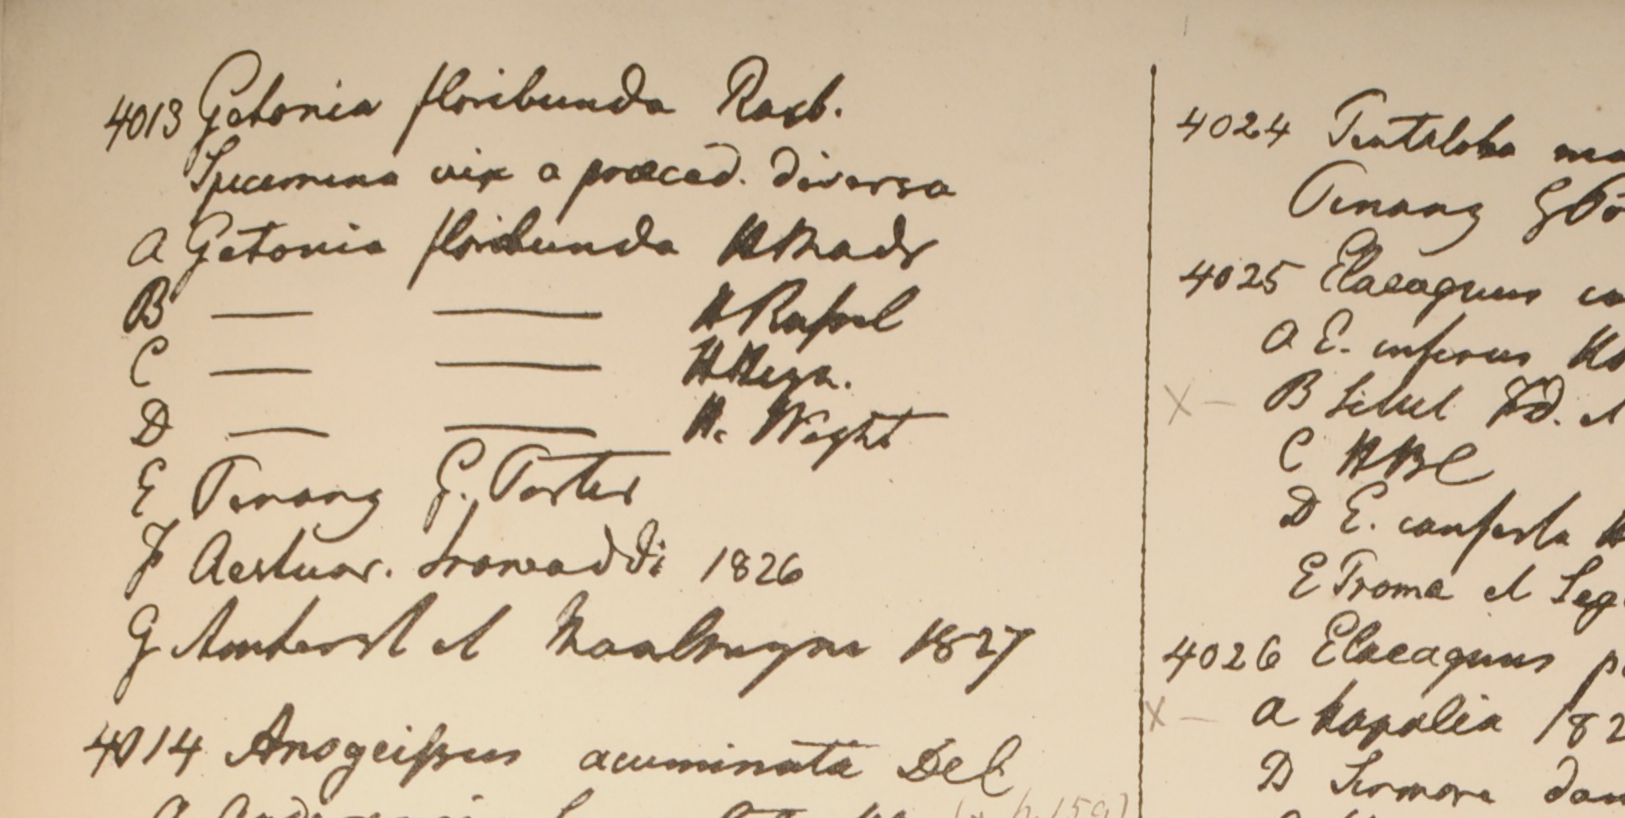 4013 Getonia floribunda Roxb.
Specimina vix a præced. diversa
A Getonia floribunda HMadr
B — — H
C — — H
D — — H. Wight
E Penang G. Porter
F Aestuar. Irawaddi 1826
G Amherst et 1827
4014 Anogeissus acuminata DeC
4024 Pentaloba
Penang GPo
4025 Elaeagnus co
A E.
B Silhet Fd. et
C HBC
D E. conferta H
E Prome et Seg
4026 Elaeagnus p
A Napalia 182
D Sirmore